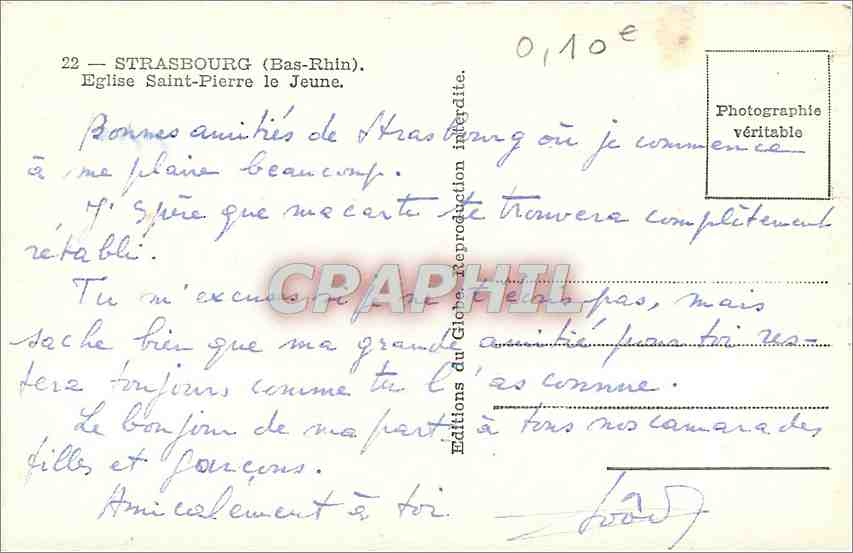 0,10€
22 — STRASBOURG (Bas-Rhin).
Eglise Saint-Pierre le Jeune.
Photographie
véritable
Editions du Globe. Reproduction interdite.
Bonnes amitiés de Strasbourg où je commence
à me plaire beaucoup.
J'espère que ma carte te trouvera complètement
rétabli.
Tu m'excuses si je ne t'écris pas, mais
sache bien que ma grande amitié pour toi res-
tera toujours comme tu l'as connue.
Le bonjour de ma part à tous nos camarades
filles et garçons.
Amicalement à toi
CPAPHIL